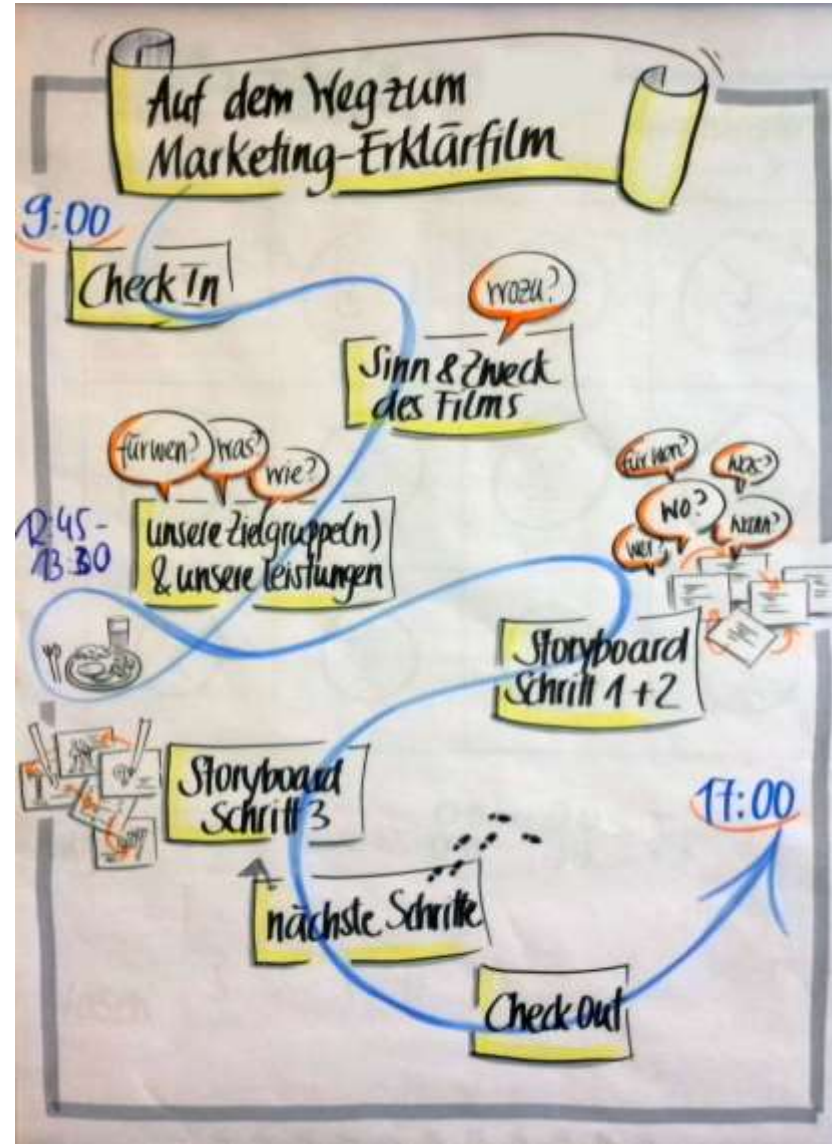 Auf dem Weg zum
Marketing-Erklärfilm
9:00
Check In
wozu?
Sinn & Zweck
des Films
für wen?
was?
wie?
unsere Zielgruppe(n)
& unsere Leistungen
12:45-
13:30
für wen?
was?
wo?
wer?
wann?
Storyboard
Schritt 1+2
Storyboard
Schritt 3
17:00
nächste Schritte
Check Out